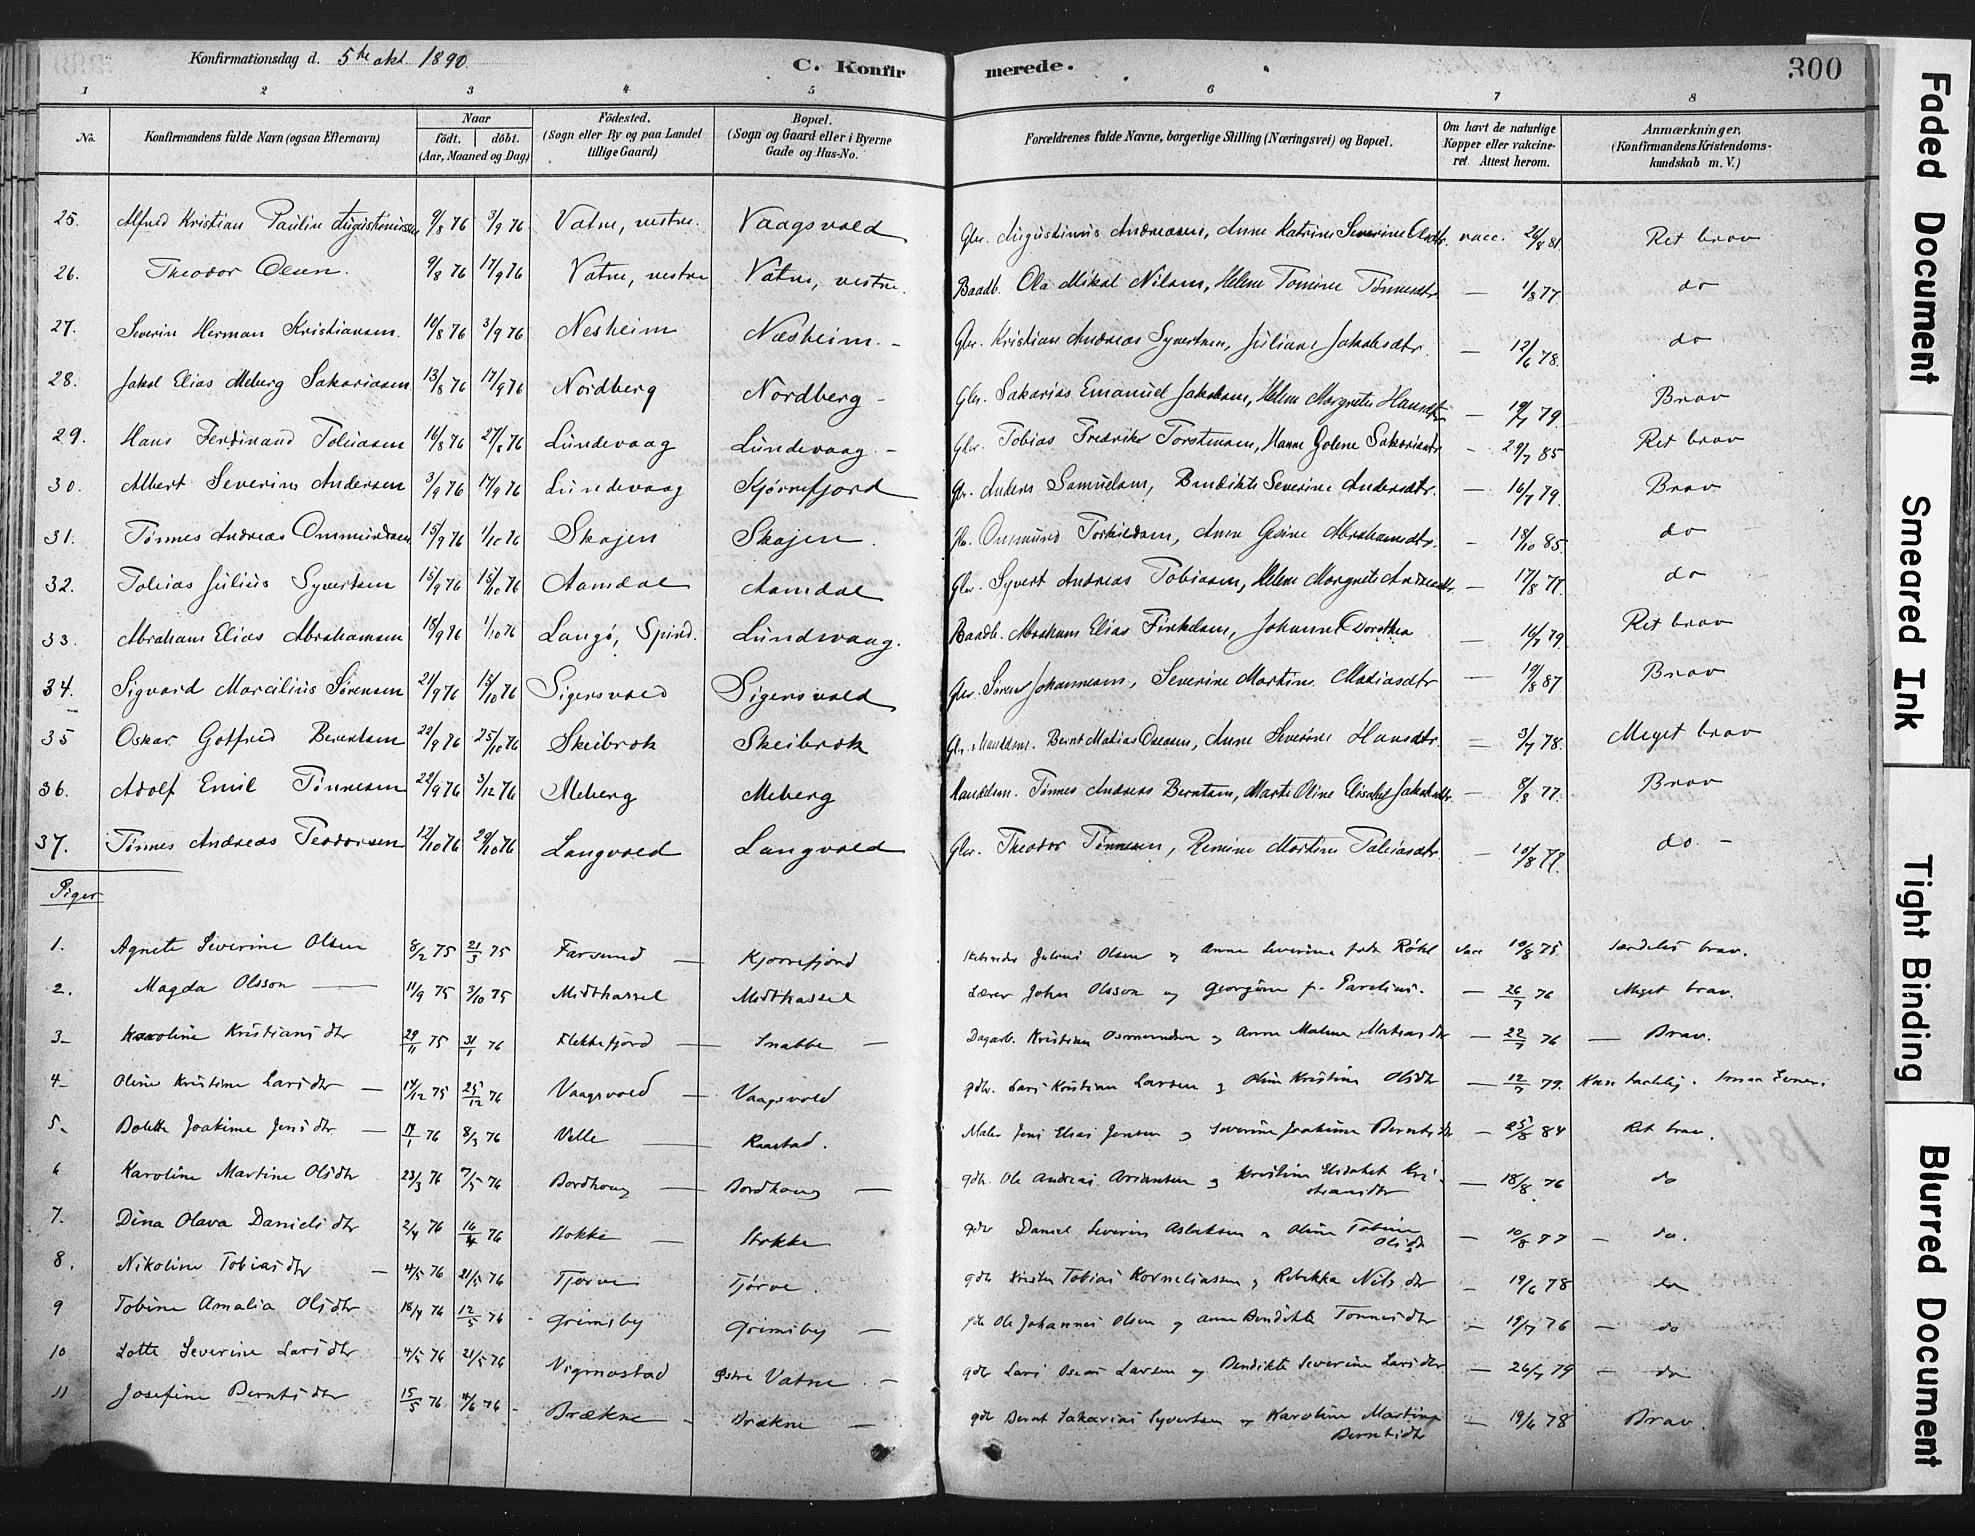 Konfirmationsdag d. 5te okt. 1890.
C. Konfirmerede.
300
1 2 3 4 5 6 7 8
No. Konfirmandens fulde Navn (ogsaa Efternavn) Naar født. døbt. (Aar, Maaned og Dag) Fødested. (Sogn eller By og paa Landet tillige Gaard) Bopæl. (Sogn og Gaard eller i Byerne Gade og Hus-No. Forældrenes fulde Navne, borgerlige Stilling (Næringsvei) og Bopæl. Om havt de naturlige Kopper eller vakcineret. Attest herom. Anmærkninger, (Konfirmandens Kristendomskundskab m. V.)
25. Alfred Kristian Paulin Augustinussen 9/8 76 3/9 76 Vatne, vestre. Vaagsvold Gbr. Augustinus Andreasen, Anne Katrine Severine Olsdtr. vacc. 26/8 81 Ret brav
26. Theodor Olsen. 9/8 76 17/9 76 Vatne, vestre Vatne, vestre. Baadb. Ola Mikal Nilsen, Helene Tomine Tønnesdtr. — 1/8 77. do
27. Severin Herman Kristiansen. 10/8 76 3/9 76 Nesheim Næsheim. – Gbr. Kristian Andreas Syvertsen, Juliane Jakobsdtr. — 12/6 78. do
28. Jakob Elias Meberg Sakariasen 13/8 76 17/9 76 Nordberg Nordberg – Gbr. Sakarias Emanuel Jakobsen, Helene Margrete Hansdtr — 79. Brav
29. Hans Ferdinand Tobiasen 16/8 76 27/8 76 Lundevaag Lundevaag. – Gbr. Tobias Fredrik Torstensen, Hanne Golene Sakariasdtr – 29/7 85 Ret brav
30. Albert Severin Andersen 3/9 76 17/9 76 Lundevaag Kjørrefjord Gbr. Anders Samuelsen, Bendikte Severine Andersdtr. — 16/7 79. Brav
31. Tønnes Andreas Ommundsen 15/9 76 1/10 76 Skajen Skajen. Gb. Ommund Torkildsen, Anne Gesine Abrahamsdtr. – 18/10 85. do
32. Tobias Julius Syvertsen 15/9 76 15/10 76 Aamdal Aamdal Gbr. Syvert Andreas Tobiasen, Helene Margrete Andreasdtr. – 17/8 77. do
33. Abraham Elias Abrahamsen 18/9 76 1/10 76 Langø, Spind. Lundevaag. Baadb. Abraham Elias Finkelsen, Johanne Dorothea — 16/7 79. Ret brav
34. Sigvard Marcilius Sørensen 21/9 76 15/10 76 Sigersvold Sigersvold Gbr. Søren Johannesen, Severine Martine Matiasdtr — 19/8 87 Brav
35 Oskar Gotfred Berntsen 22/9 76 25/10 76 Skeibrok Skeibrok Gbr. & Handelsm. Bernt Matias Osesen, Anne Severine Hansdtr. — 3/7 78. Meget brav
36. Adolf Emil Tønnesen 22/9 76 3/12 76 Meberg Meberg Handelsm. Tønnes Andreas Berntsen, Marte Oline Elisabet Jakobsdtr. – 8/8 77. Brav
37. Tønnes Andreas Teodorsen 12/10 76 29/10 76 Langvold Langvold Gbr. Theodor Tønnesen, Remine Martine Tobiasdtr. – 10/8 77. do. –
Piger
1. Agnete Severine Olsen 8/2 75 21/3 75 Farsund — Kjorrefjord Julius Olsen og Anne Severine født Røkl vacc 10/8 75. særdeles brav.
2. Magda Olsson — 11/9 75 3/10 75 Midthassel Midthassel Lærer John Olsson og Georgine f. — 26/7 76 Meget brav.
3– Karoline Kristiansdtr 29/11 75 31/1 76 Flekkefjord — Snabbe — Dagarb. Kristian Osmundsen og Anne Malene Matiasdtr — 22/7 76 — Brav.
4– Oline Kristine Larsdtr — 14/12 75 25/12 76 Vaagsvold — Vaagsvold gdbr. Lars Kristian Larsen og Oline Kristine Olsdtr — 12/7 79. smaa Evner.
5– Bolette Joakime Jensdtr — 17/1 76 8/3 76 Velle — Raastad. Maler Jens Elias Jensen og Severine Joakime Berntsdtr — 25/8 84 Ret brav.
6 Karoline Martine Olsdtr 23/3 76 7/5 76 Bordhoug — Bordhoug — gdb. Ole Andreas Ariansen og Kristine Elisabet Kristiansdtr — 18/8 76 do
7. Dina Olava Danielsdtr 2/4 76 16/4 76 Stokke — Stokke gdbr Daniel Severin Aslaksen og Oline Tobine Olsdtr — 10/8 77 — do.
8. Nikoline Tobiasdtr — 4/5 76 21/5 76 Tjørve Tjørve. gdb Kristen Tobias Korneliussen og Rebekka Nilsdtr – 19/6 78 do
9 Tobine Amalia Olsdtr 18/4 76 12/5 76 Grimsby Grimsby — gdb Ole Johannes Olsen og Anne Bendikte Tonnesdtr – 19/7 76 — do
10 Lotte Severine Larsdtr 4/5 76 21/5 76 Nigmostad Østre Vatne. – gdb Lars Oseas Larsen og Bendikte Severine Larsdtr — 26/7 79 – do
11 Josefine Berntsdtr 15/5 76 4/6 76 – Brækne — Brækne — gdb Bernt Sakarias Syvertsen og Karoline Martine Berntsdtr — 19/6 78 Brav.
Faded Document
Smeared Ink
Tight Binding
Blurred Document